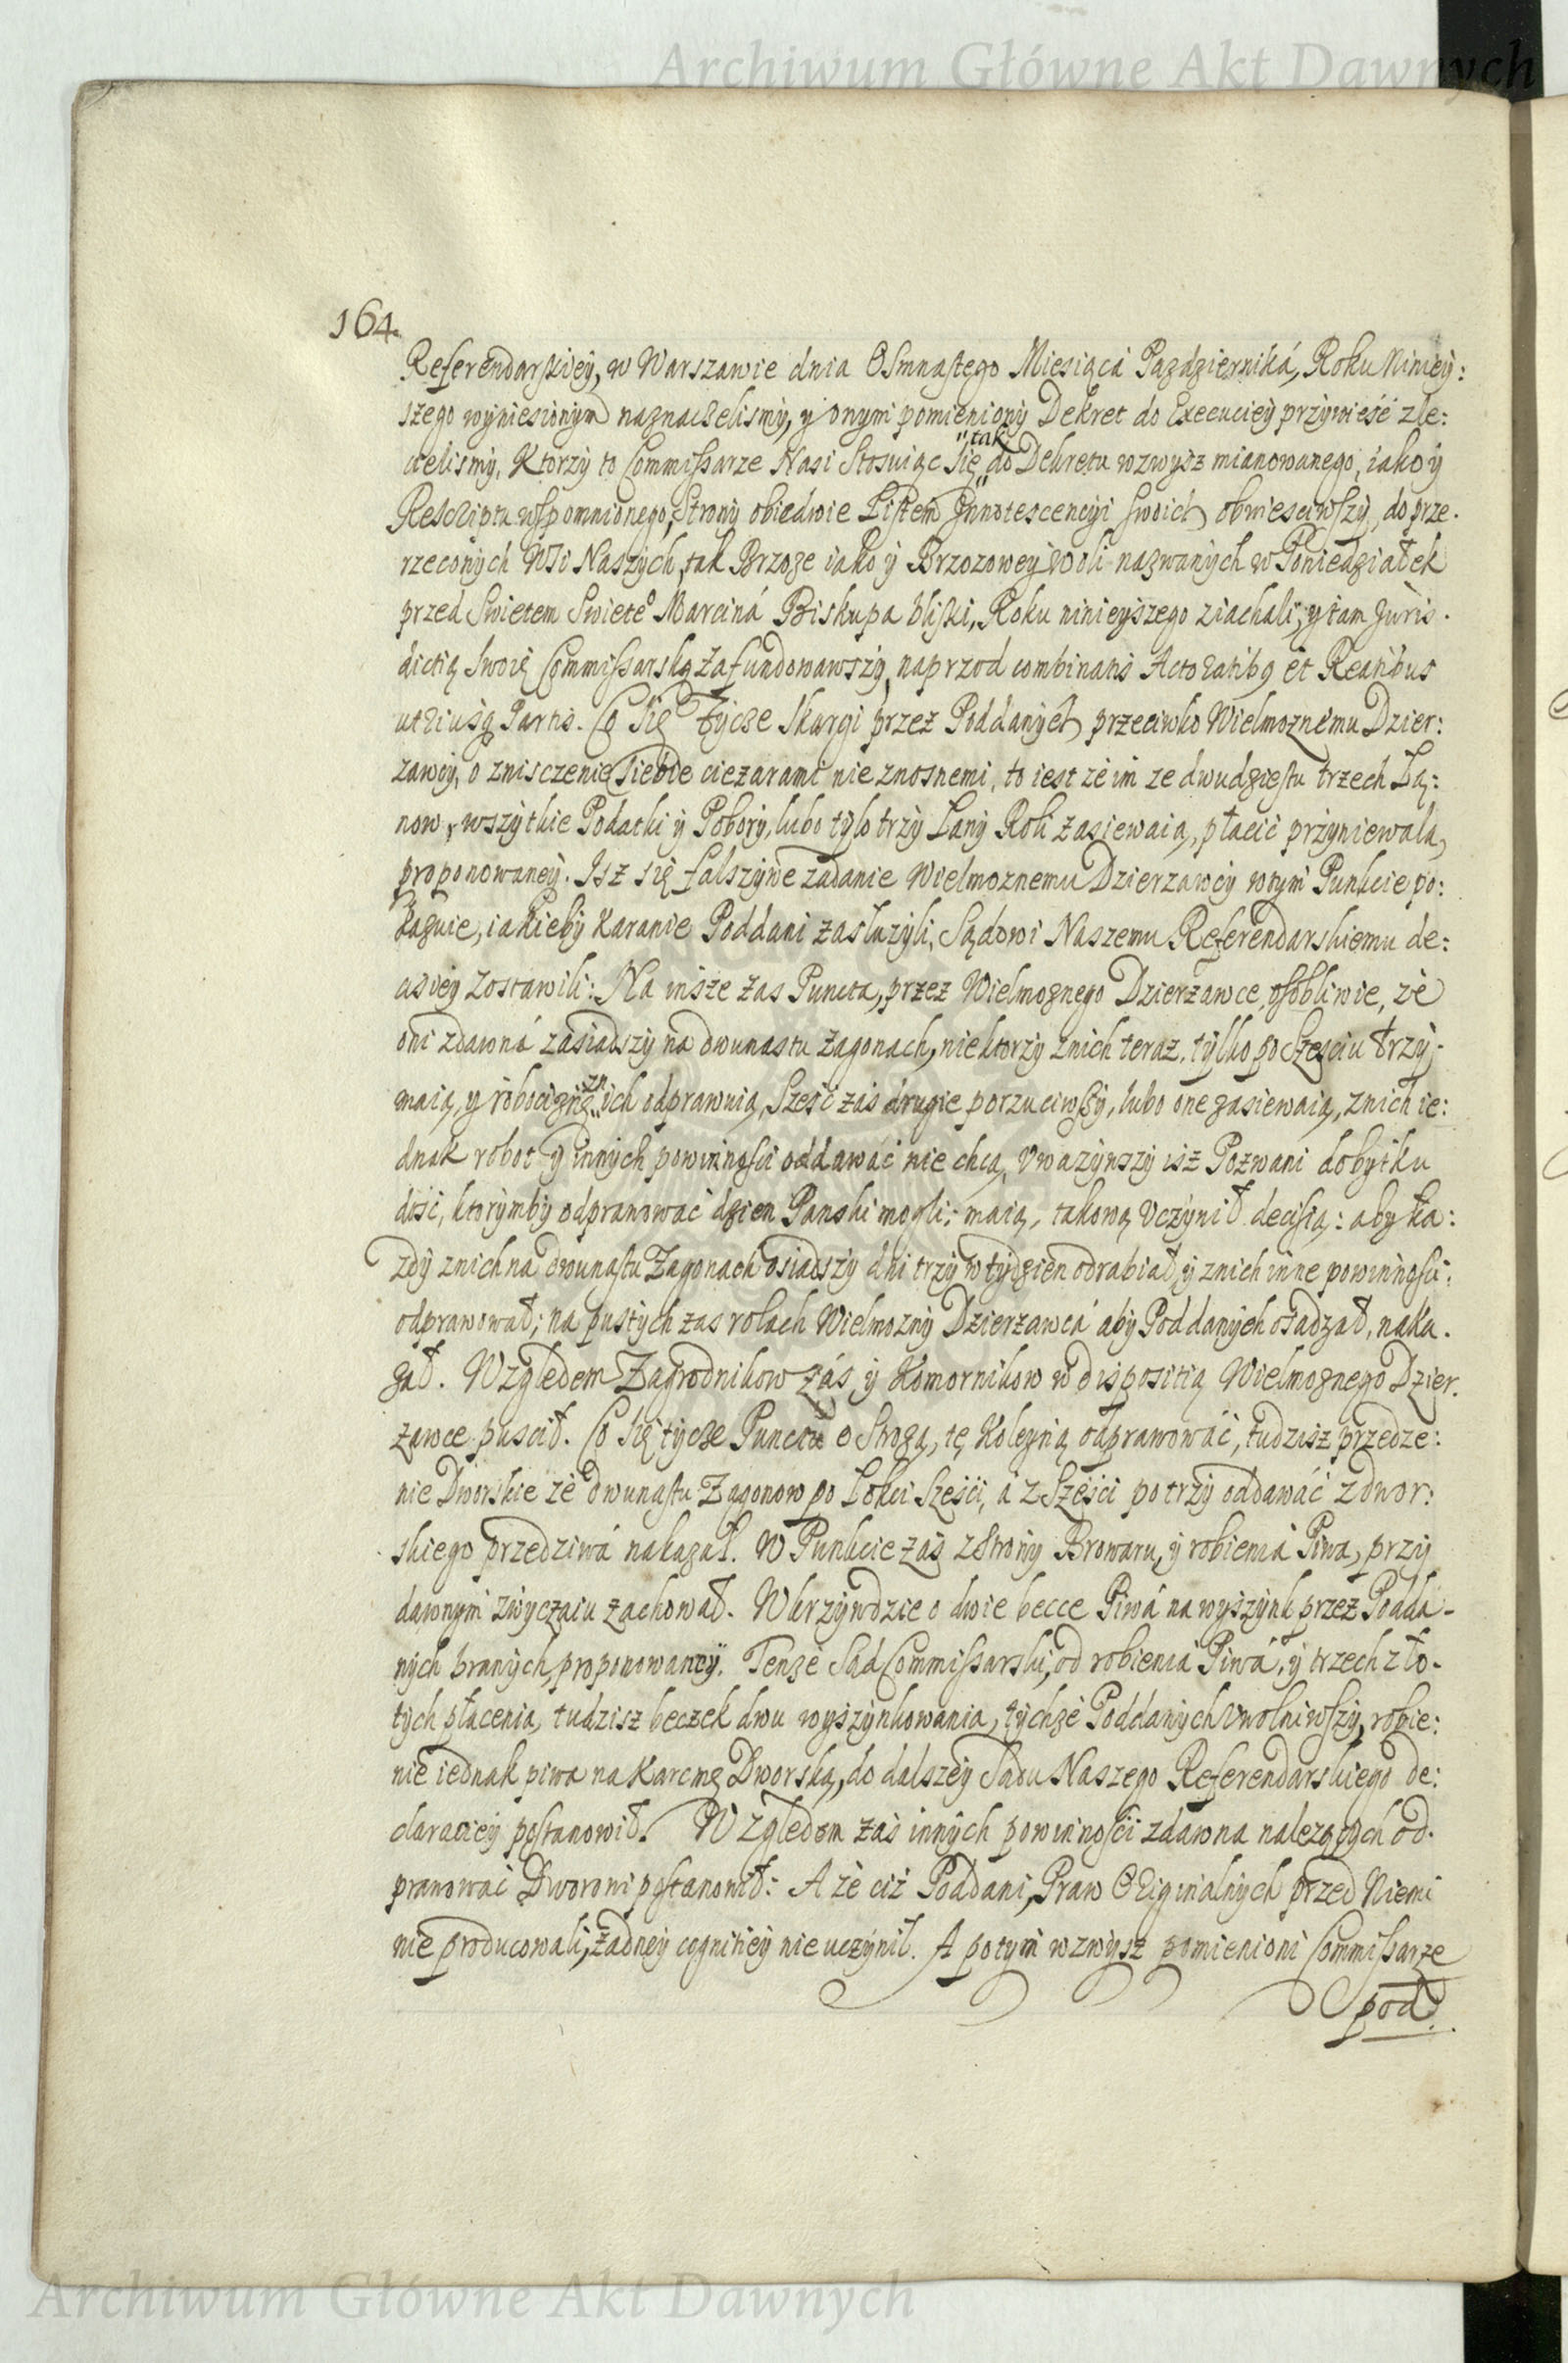 Archiwum Główne Akt Dawnych
164.
Referendarskiey, w Warszawie dnia Osmnastego Miesiącá Pazdzierniká, Roku Niniey:
szego wyniesionym naznaczelismy, y onym pomieniony Dekret do Execuciey przywieść zle:
cielismy. Ktorzy to Commissarze Nasi Stosuiąc się "tak" do Dekretu wzwysz mianowanego, iako y
Rescriptu wspomnionego, Strony obiedwie Listem Innotescencyi swoich obwiesciwszy, do prze.
rzeconych Wsi Naszych, tak Brzoze iako y Brzozowey Woli nazwanych w Poniedziałek
przed Swietem Swiete° Marciná Biskupa bliski, Roku ninieyszego ziachali, y tam Juris.
dictią Swoię Commissarską zafundowawszy, naprzod combinatis Actoratibq et Reatibus
utriusq Partis. Co się tycze Skargi przez Poddanych przeciwko Wielmoznemu Dzier:
zawcy, o znisczenie siebie ciezarami nie znosnemi, to iest ze im ze dwudziestu trzech Łą:
now, wszytkie Podatki y Pobory, lubo tylo trzy Lany Roli zasiewaią, płacić przyniewala,
proponowaney. Isz się falszywe zadanie Wielmoznemu Dzierzawcy wtym Punkcie po:
kazuie, iakieby karanie Poddani zasluzyli, Sądowi Naszemu Referendarskiemu de:
cisiey zostawili: Na insze zas Puncta, przez Wielmoznego Dzierzawce, osobliwie, że
oni zdawná zasiadszy na dwunastu zagonach, niektorzy znich teraz, tylko po Szesciu trzy:
maią, y robociznę "zn" ich odprawuią, Sześć zaś drugie porzuciwszy, lubo one zasiewaią, znich ie:
dnak robot y innych powinności oddawáć nie chcą, Vwazywszy isz Pozwani dobytku
dość, ktorymby odprawować dzien Panski mogli; maią, takową Vczynił decisią: aby ka:
zdy znich na dwunastu Zagonach osiadszy dni trzy w tydzien odrabiał, y znich inne powinności:
odprawował; na pustych zas rolach Wielmozny Dzierzawcá aby Poddanych osadzał, naka.
zał. Względem Zagrodnikow zás y Komornikow w dispositią Wielmoznego Dzier.
zawce puscił. Co się tycze Punctu o Strozą, tę Koleyną odprawowáć, tudzisz przedze:
nie Dworskie ze dwunastu Zagonow po Lokci Sześći, á z Sześci po trzy oddawáć z dwor:
skiego przedziwá nakazał. W Punkcie zaś z Strony Browaru, y robienia Piwa, przy
dawnym zwyczaiu zachował. W krzywdzie o dwie becce Piwá na wyszynk przez Podda-
nych branych, proponowaney. Tenże Sąd Commissarski, od robienia Piwá, y trzech zło-
tych płacenia, tudzisz beczek dwu wyszynkowania, tychze Poddanych Vwolniwszy, robie:
nie iednak piwa na Karcmę Dworską, do dalszey Sądu Naszego Referendarskiego de:
claraciey postanowił. Względem zaś innych powinności zdawna nalezących od.
prawować Dworowi postanowił: A że ciż Poddani, Praw Originalnych przed Niemi
nie producowali, żadney cognitiey nie uczynił. A potym wzwysz pomienioni Commissarze
pod.
Archiwum Główne Akt Dawnych